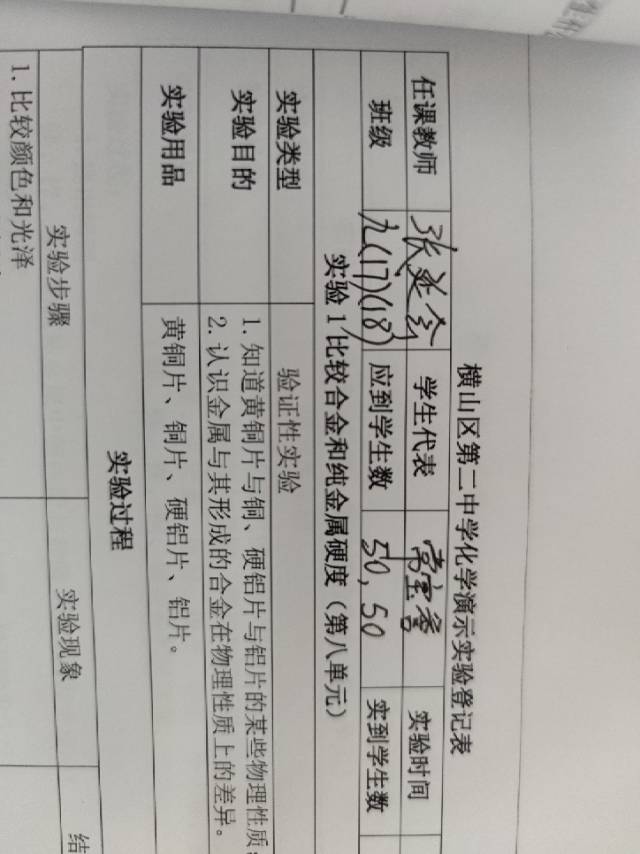 横山区第二中学化学演示实验登记表
任课教师 张延会 学生代表 实验时间
班级 九(17)(18) 应到学生数 50,50 实到学生数
实验 1 比较合金和纯金属硬度（第八单元）
实验类型 验证性实验
实验目的 1. 知道黄铜片与铜、硬铝片与铝片的某些物理性质
2. 认识金属与其形成的合金在物理性质上的差异。
实验用品 黄铜片、铜片、硬铝片、铝片。
实验过程
实验步骤 实验现象 结
1. 比较颜色和光泽